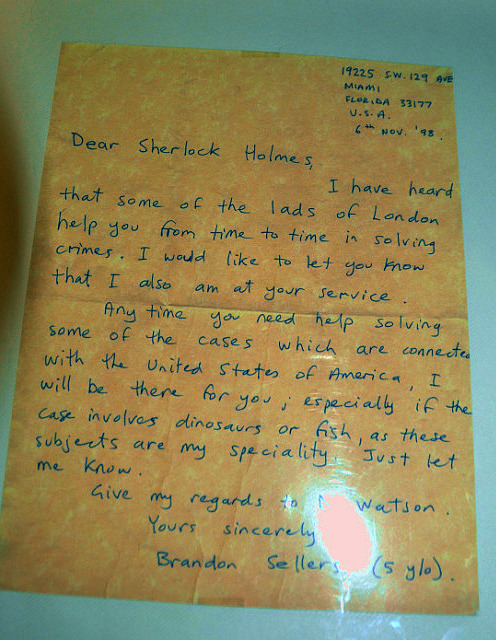 19225 S.W. 129 AVE
MIAMI
FLORIDA 33177
U.S.A.
6th NOV. '98.
Dear Sherlock Holmes,
I have heard
that some of the lads of London
help you from time to time in solving
crimes. I would like to let you know
that I also am at your service.
Any time you need help solving
some of the cases which are connected
with the United States of America, I
will be there for you; especially if the
case involves dinosaurs or fish, as these
subjects are my speciality. Just let
me know.
Give my regards to Watson.
Yours sincerely
Brandon Sellers (5 y/o).